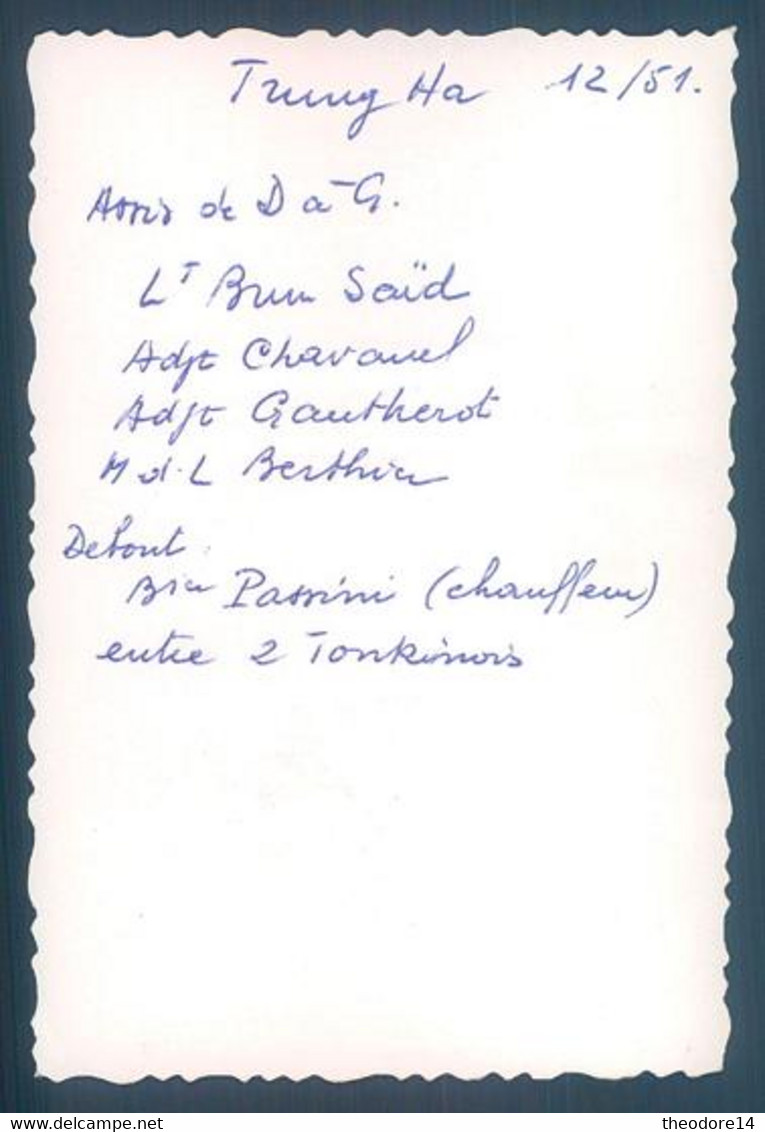 Trung Ha 12/51.
Assis de D à G.
Lt Brun Saïd
Adjt Chavanel
Adjt Gautherot
M d L Berthier
Debout
Bier Passini (chauffeur)
entre 2 Tonkinois
www.delcampe.net
theodore14